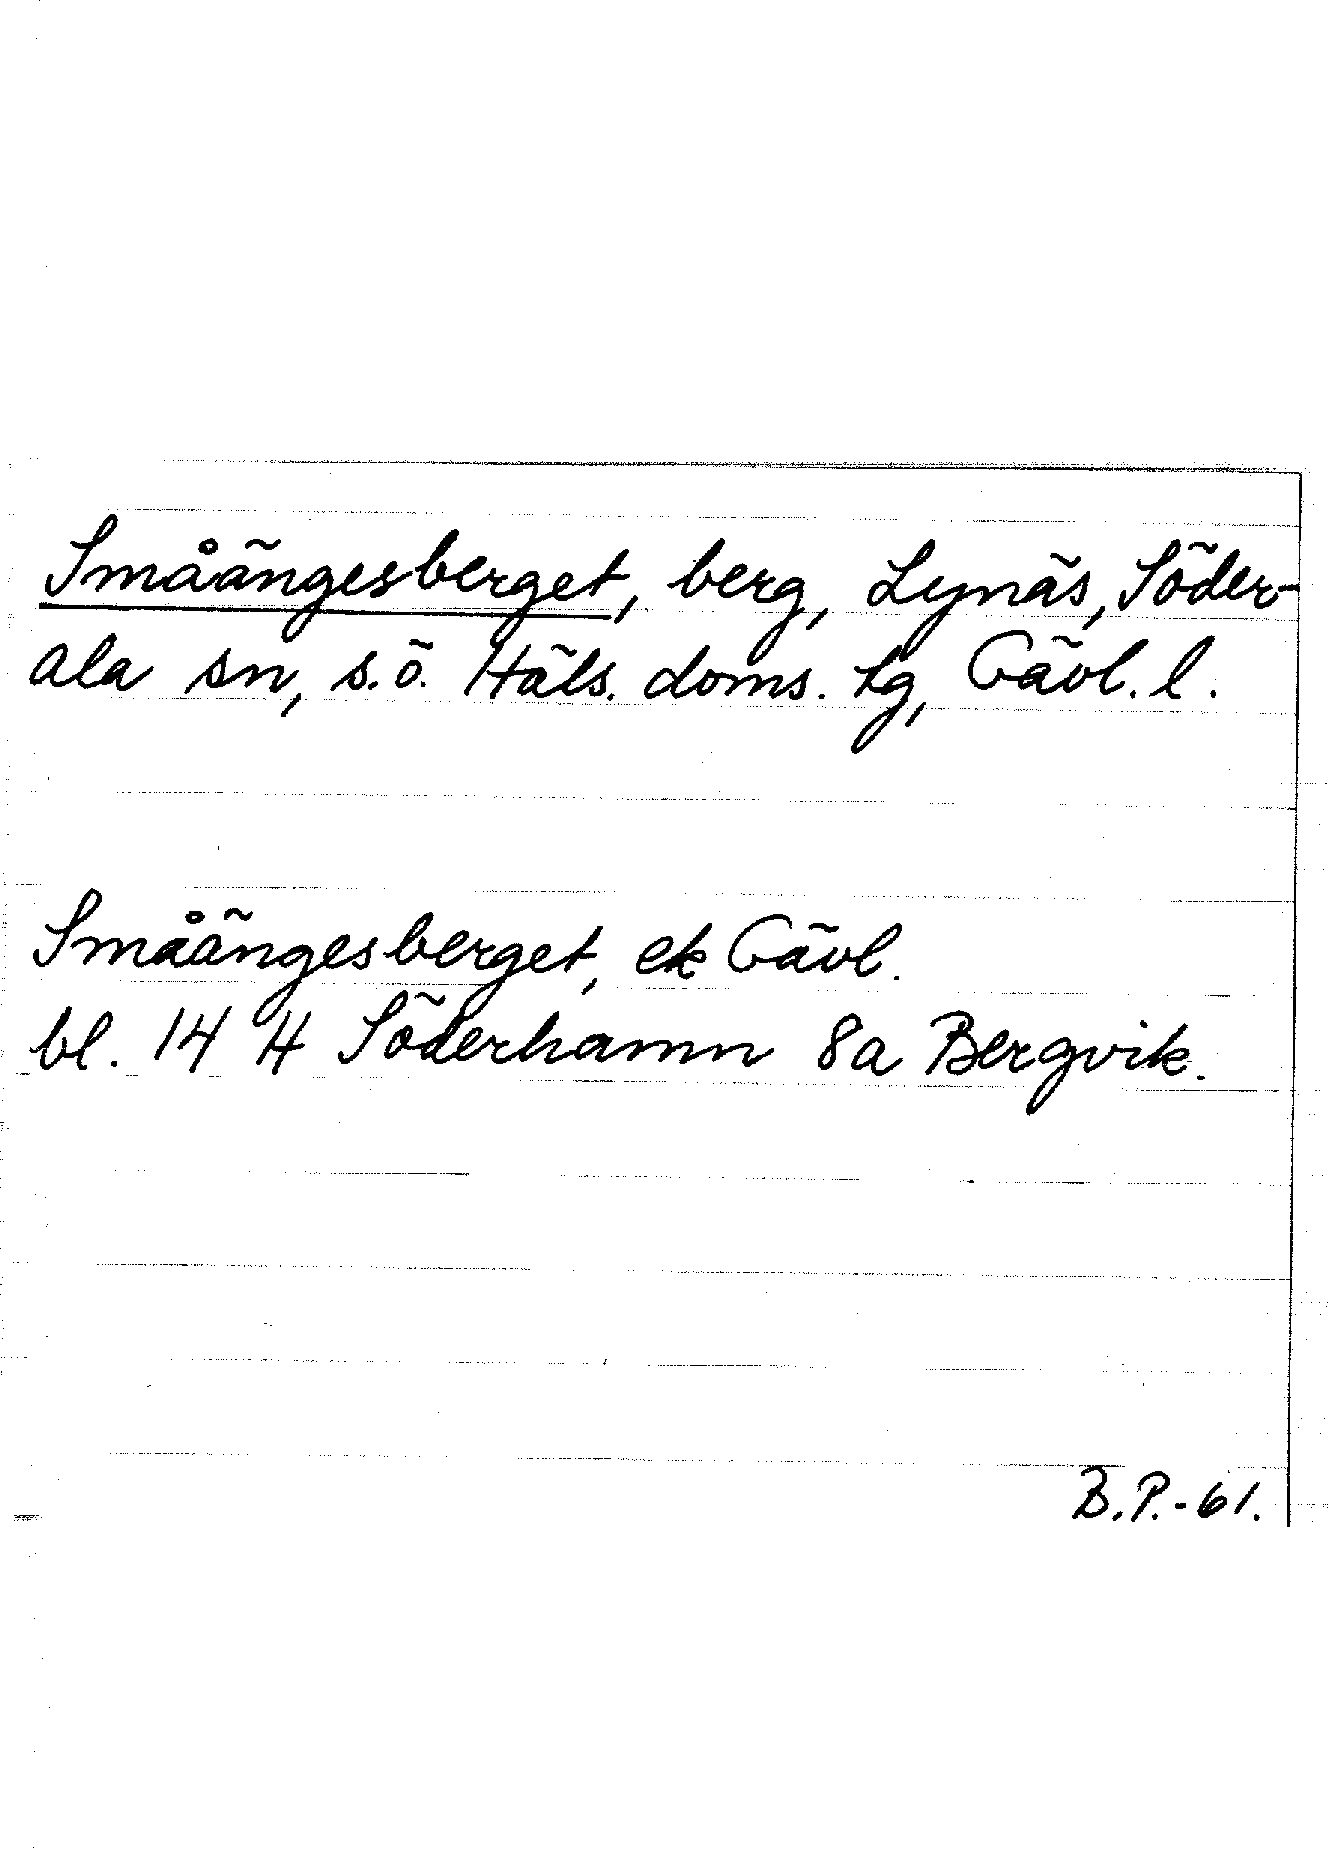 Småängesberget, berg, Lynäs, Söder-
ala sn, s.ö. Häls. doms. lg, Gävl. l.
Småängesberget, ek Gävl.
bl. 14 H Söderhamn 8a Bergvik.
B.P.-61.